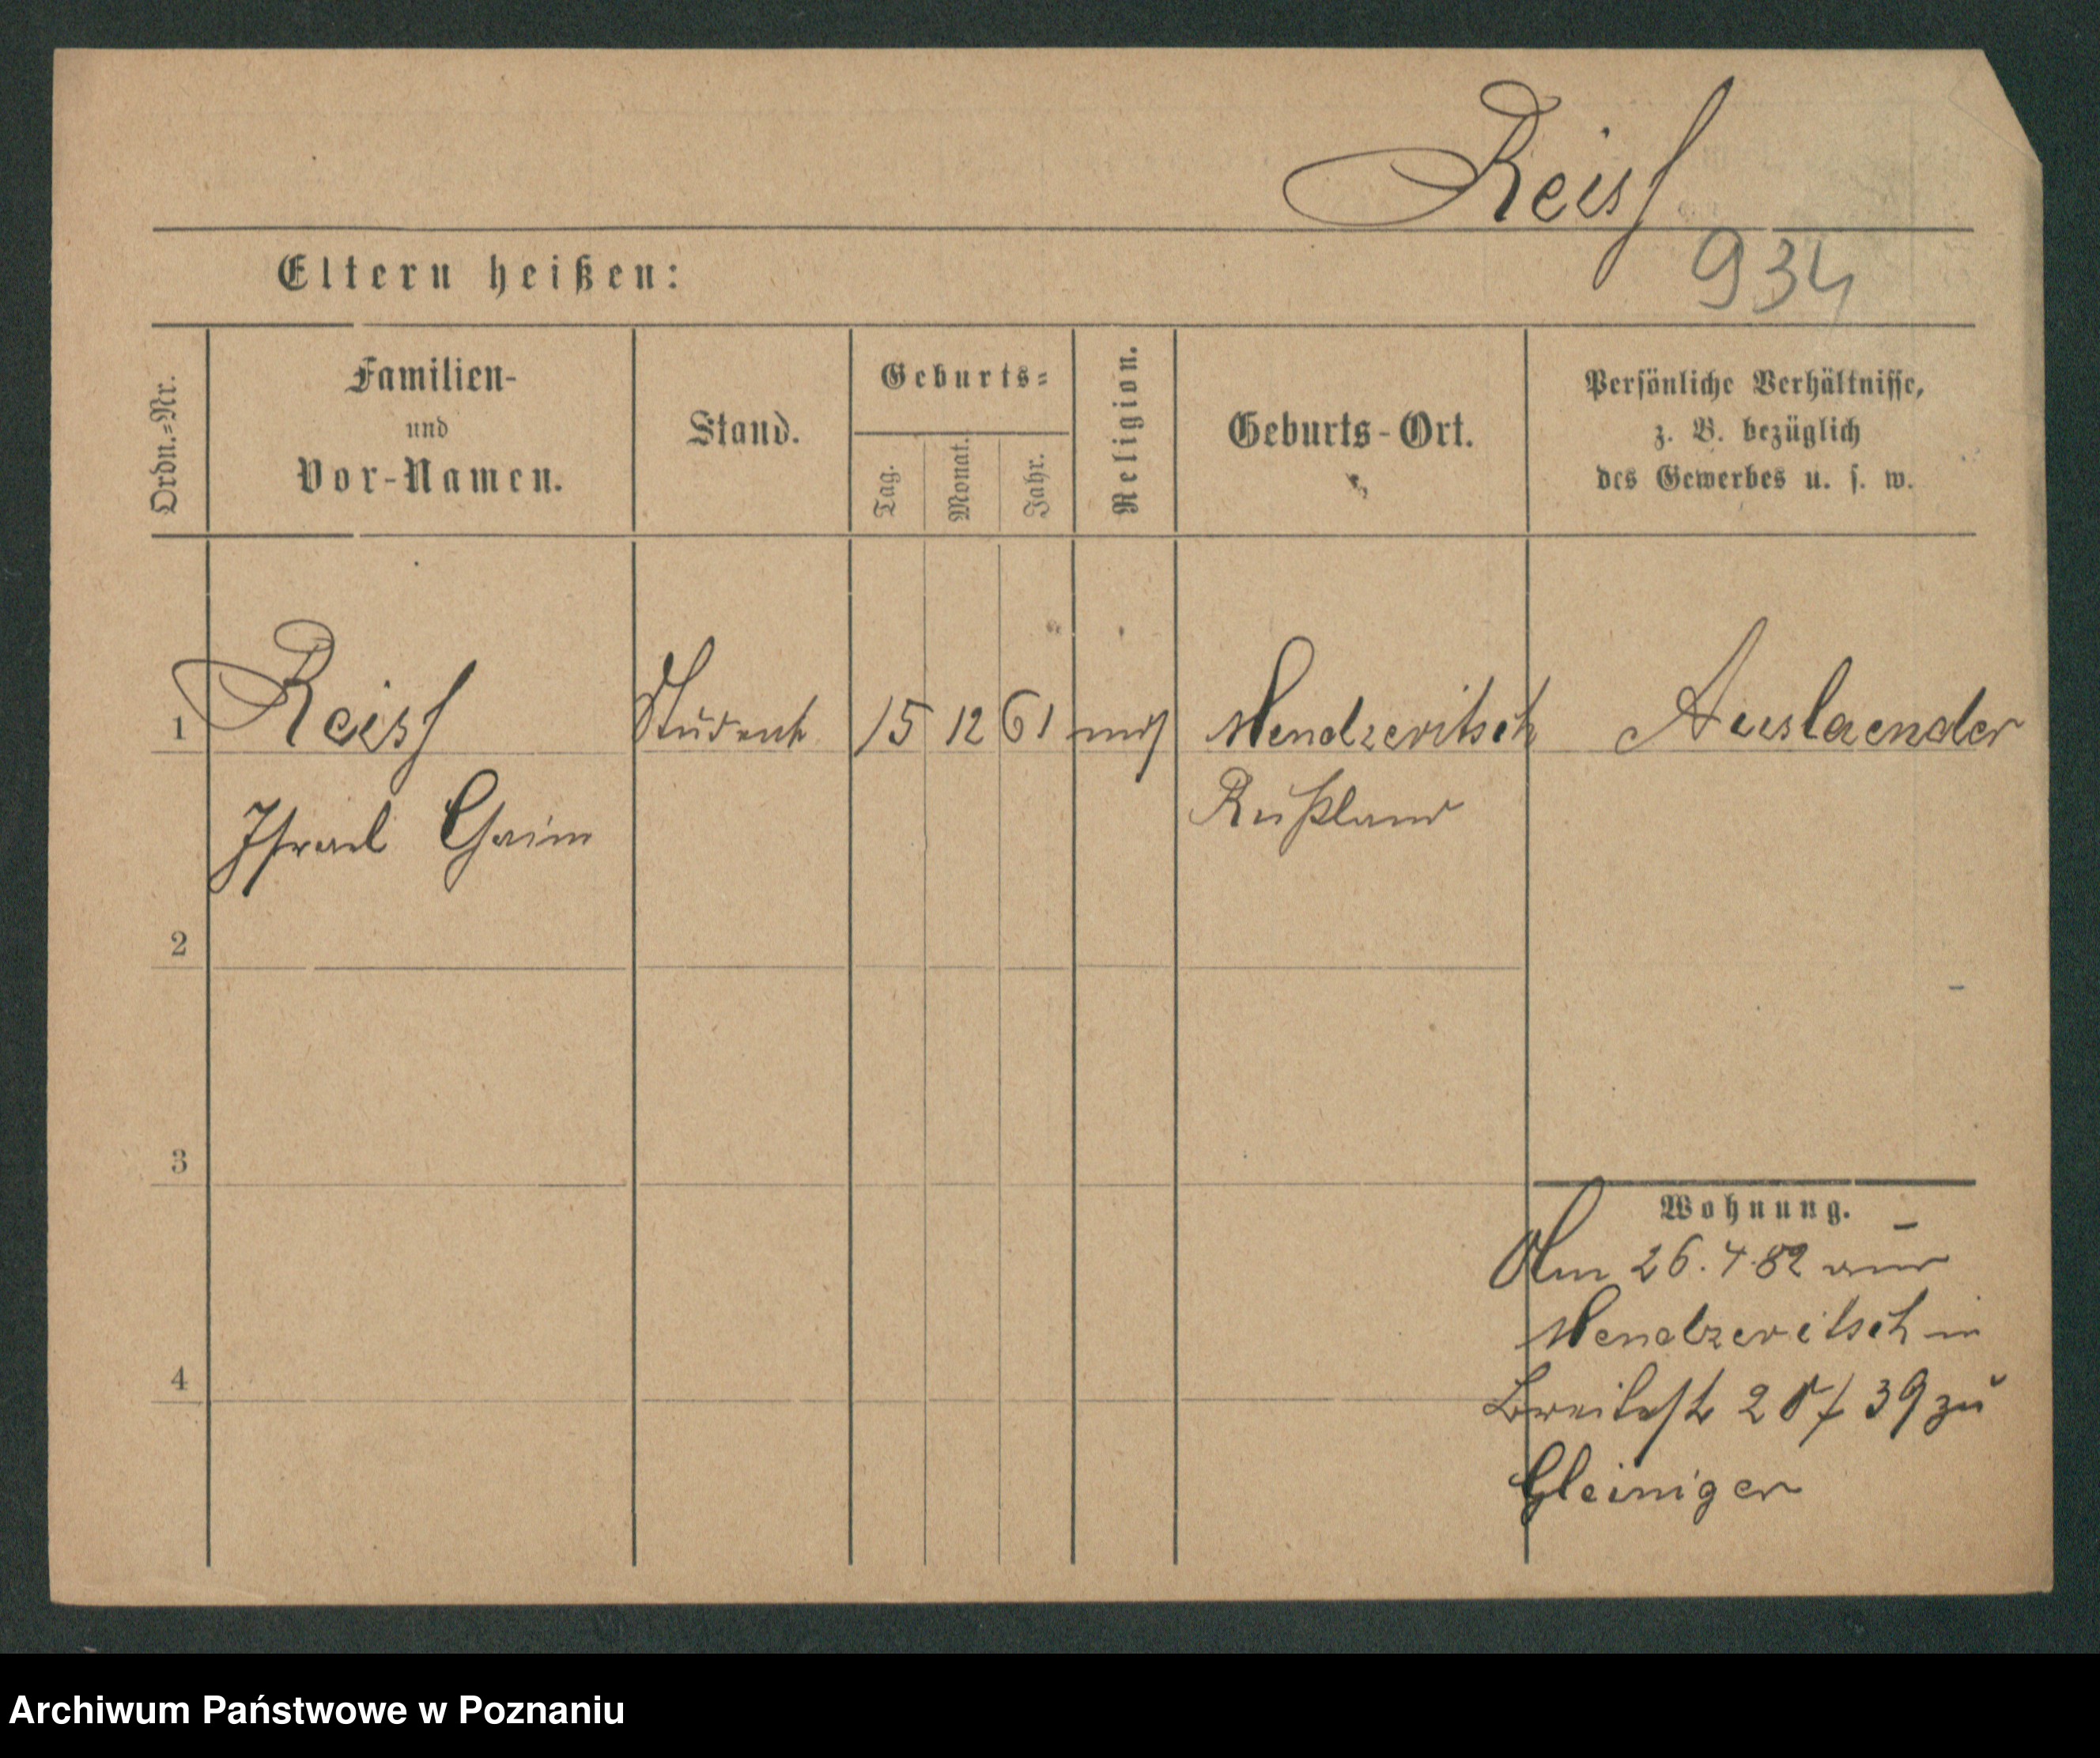 Reiss
934
Eltern heißen:
Ordn.=Nr.
Familien-
und
Vor-Namen.
Stand.
Geburts=
Tag.
Monat.
Jahr.
Religion.
Geburts-Ort.
Persönliche Verhältnisse,
z. B. bezüglich
des Gewerbes u. s. w.
1 Reiss Student 15 12 61 mos Mendzeritsch Auslaender
Israel Chaim Rußland
2
3
4
Wohnung.
Am 26. 4. 82 aus
Mendzeritsch in
Breitestr 39 zu
Gleiniger
Archiwum Państwowe w Poznaniu